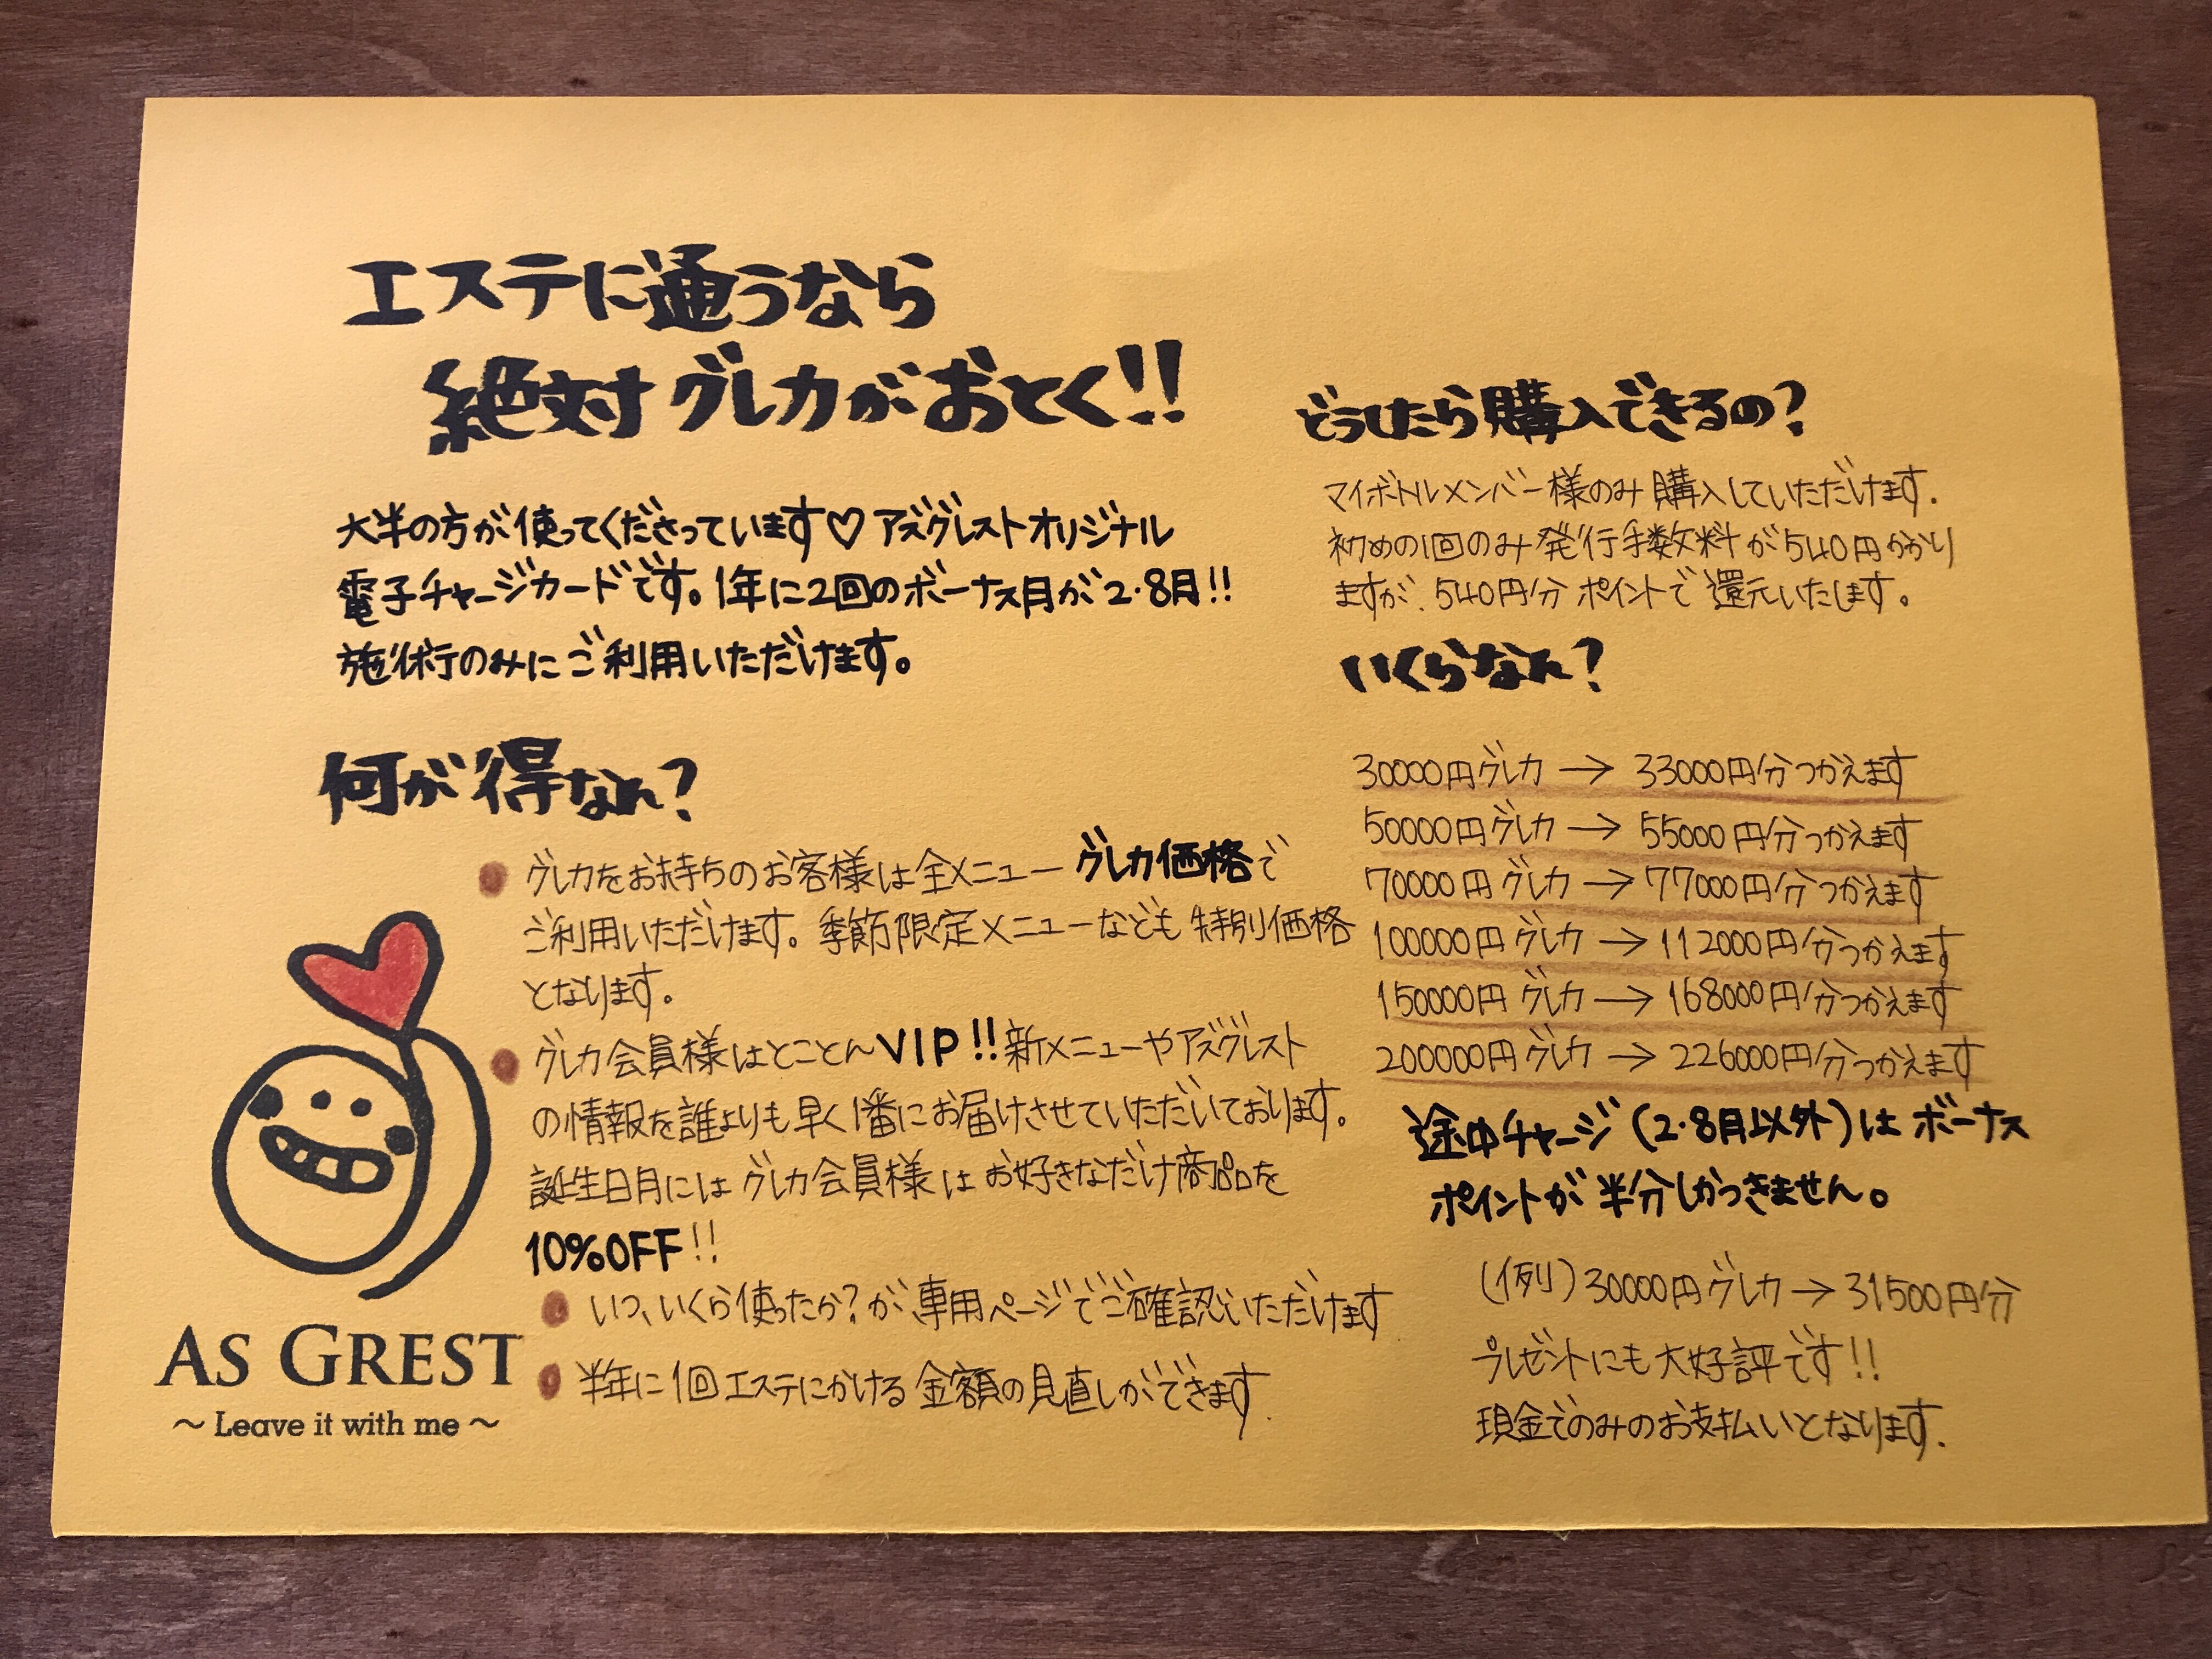 エステに通うなら
絶対グレカがおとく!!
大半の方が使ってくださっています♡アズグレストオリジナル
電子チャージカードです。1年に2回のボーナス月が2・8月!!
施術のみにご利用いただけます。
何が得なん?
グレカをお持ちのお客様は全メニューグレカ価格で
ご利用いただけます。季節限定メニューなども特別価格
となります。
グレカ会員様はとことんVIP!!新メニューやアズグレスト
の情報を誰よりも早く1番にお届けさせていただいております。
誕生日月にはグレカ会員様はお好きなだけ商品を
10%OFF!!
いつ、いくら使ったか?が、専用ページでご確認いただけます
半年に1回エステにかける金額の見直しができます.
AS GREST
~ Leave it with me ~
どうしたら購入できるの?
マイボトルメンバー様のみ購入していただけます.
初めの1回のみ発行手数料が540円かかり
ますが、540円分ポイントで還元いたします。
いくらなん?
30000円グレカ → 33000円分つかえます
50000円グレカ → 55000円分つかえます
70000円グレカ → 77000円分つかえます
100000円グレカ → 112000円分つかえます
150000円グレカ → 168000円分つかえます
200000円グレカ → 226000円分つかえます
途中チャージ(2・8月以外)はボーナス
ポイントが半分しかつきません。
(例)30000円グレカ→31500円分
プレゼントにも大好評です!!
現金でのみのお支払いとなります.